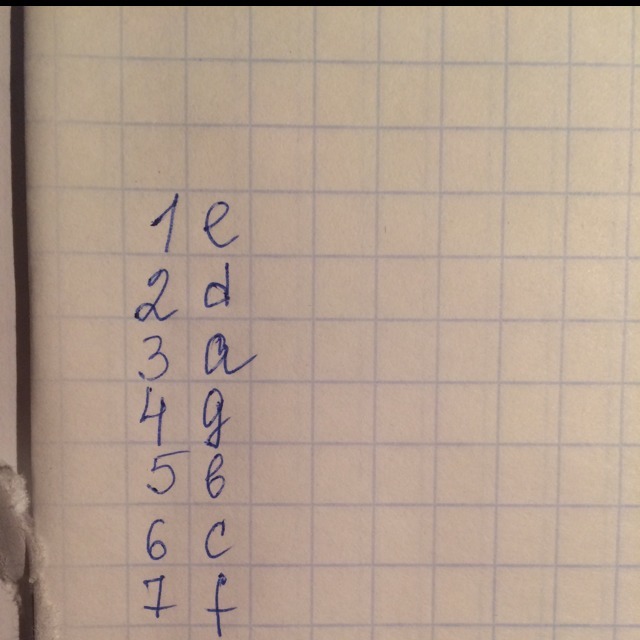 1 e
2 d
3 a
4 g
5 b
6 c
7 f